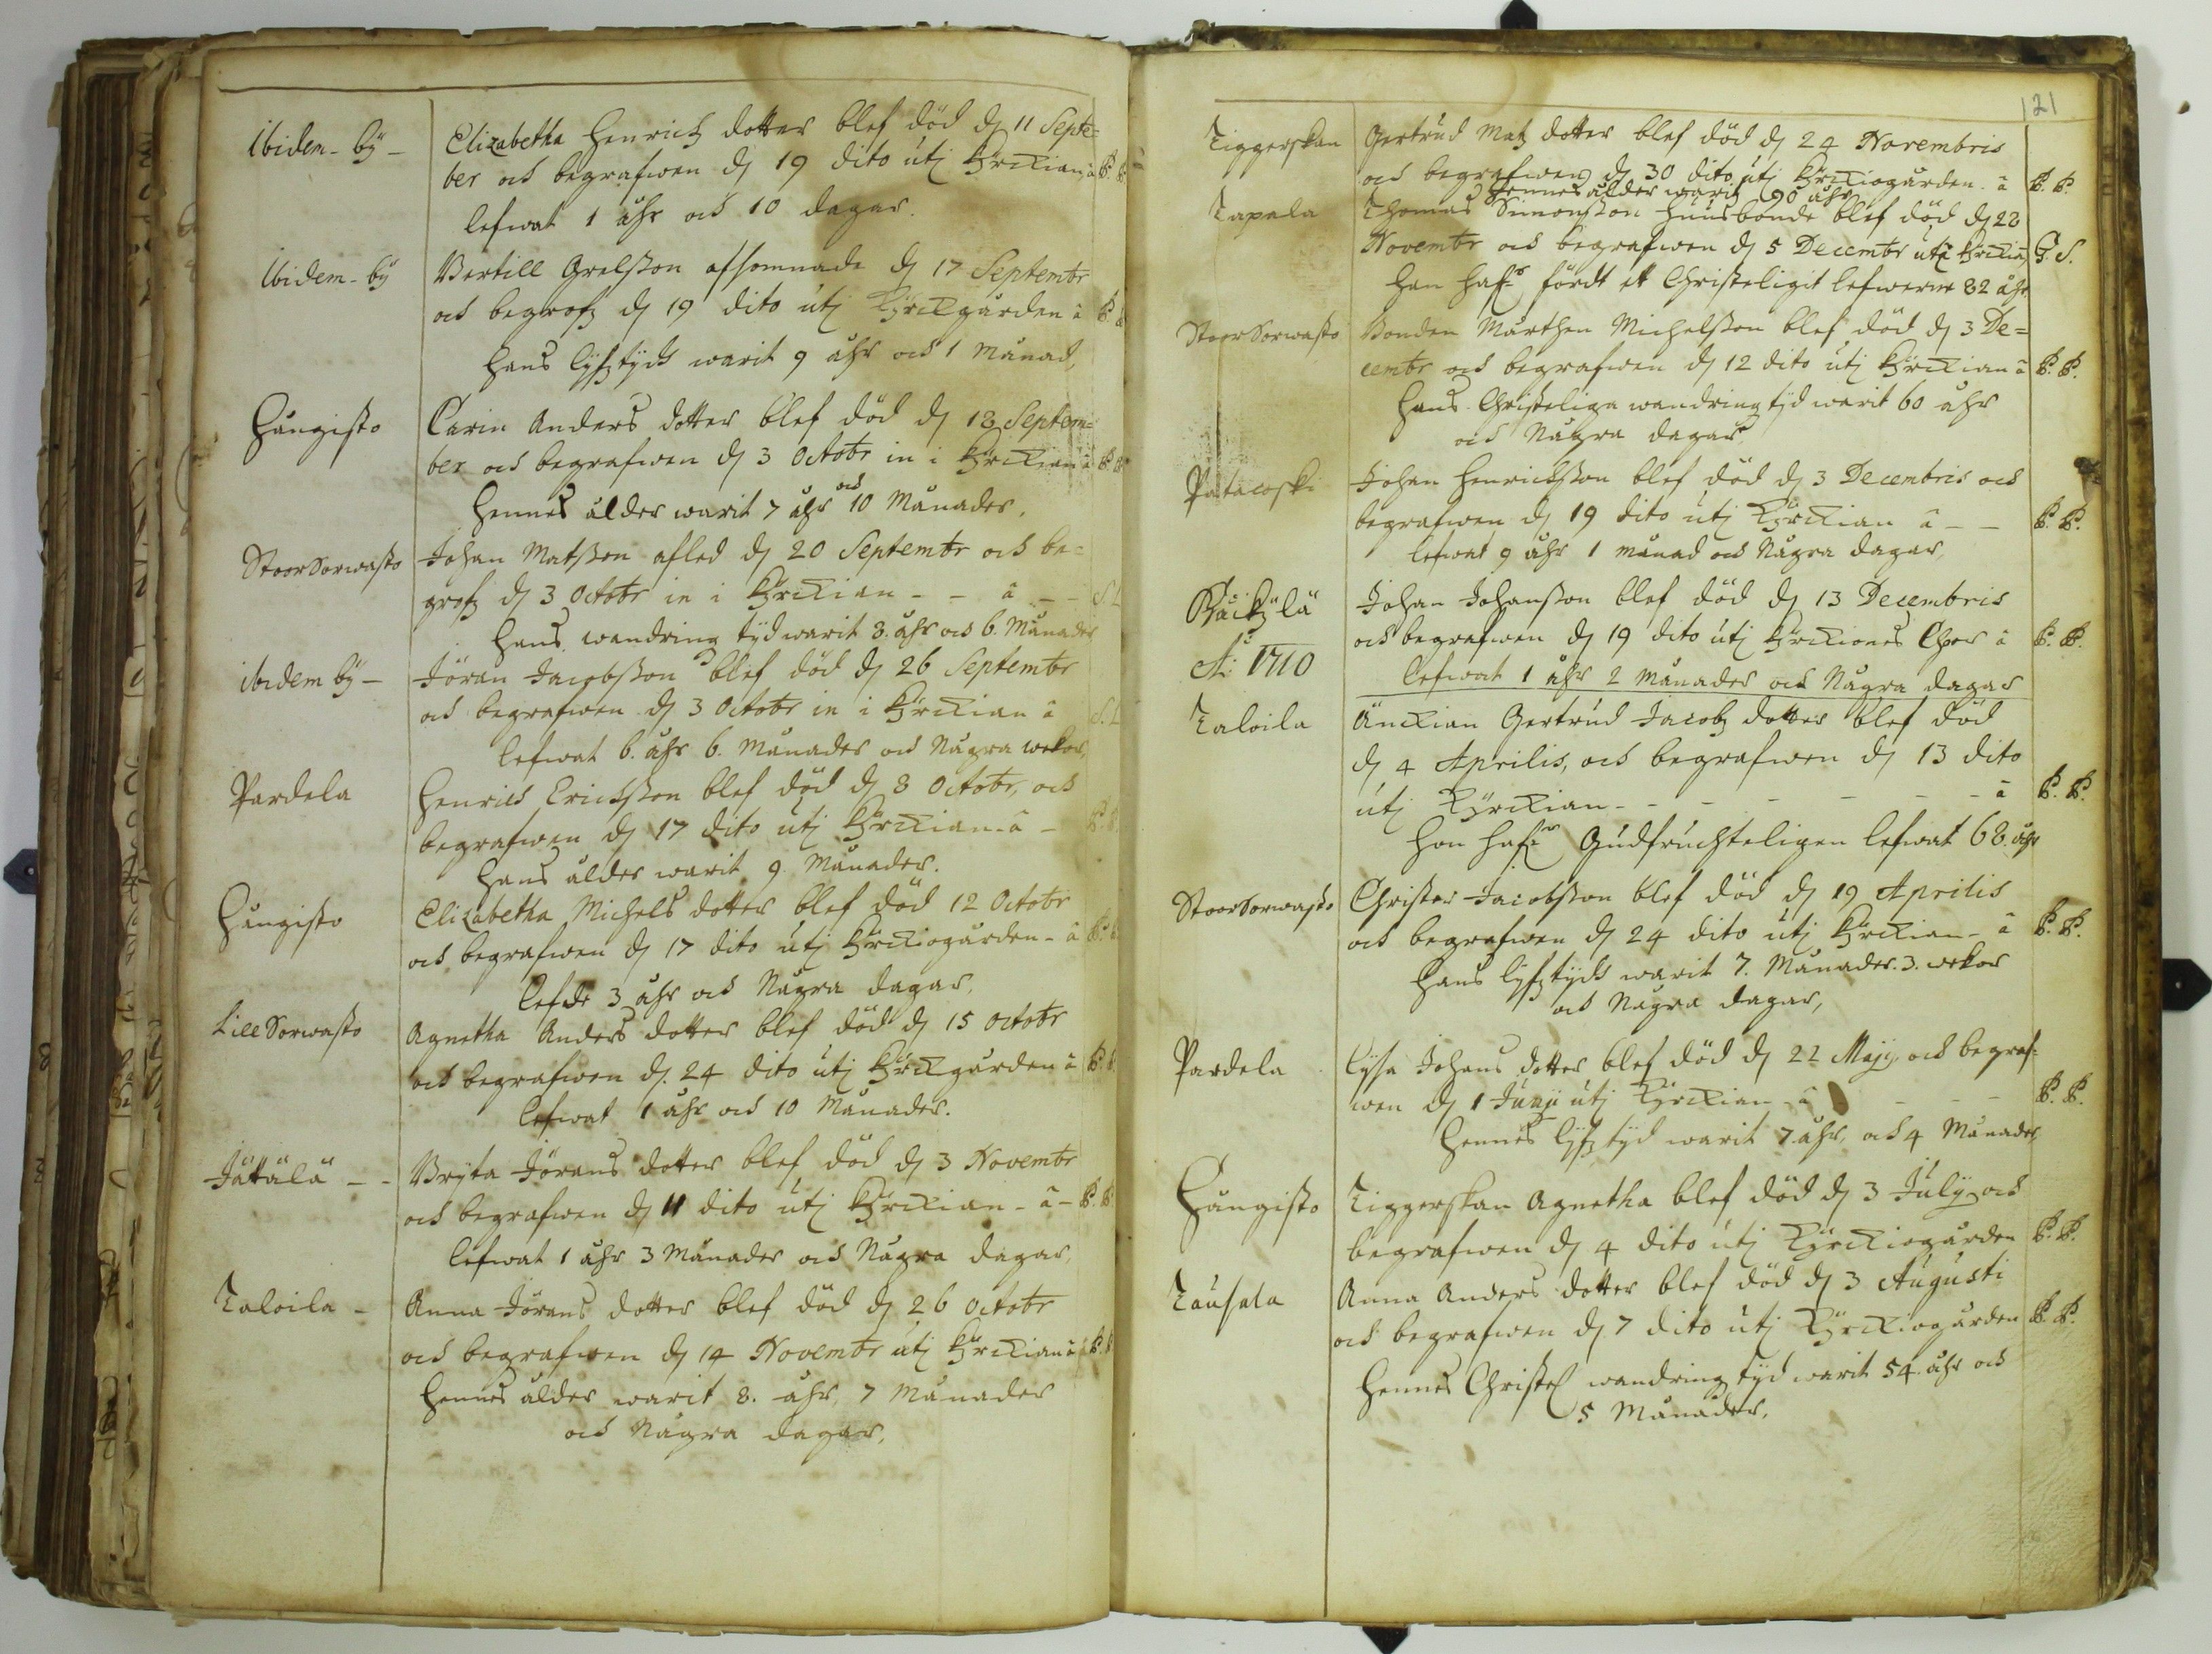 Ibidem - by - Elizabetha Henrichz dotter blef död dj 11 Septe=
ber och begrafwen dj 19 dito utj kyrckian â
lefwat 1 åhr och 10 dagar.
Ibidem - by Bertill Grelsson afsomnade dj 17 Septembr
och begrofz dj 19 dito utj kyrckgården â
hans lyfztydh warit 9 åhr och 1 Månad,
Hångisto Carin Anders dotter blef död dj 18 Septem=
ber och begrafwen dj 3 Octobr in i kyrckian â
och
Hennes ålder warit 7 åhr 10 Månader.
Stoor Sorwasto Johan Matsson afled dj 20 Septembr och be=
grofz dj 3 Octobr in i kyrckian - - â - -
hans wandring tyd warit 3. åhr och 6. Månader
ibidem by - Jöran Jacobsson blef död dj 26 Septembr
och begrafwen dj 3 Octobr in i kyrckian â
lefwat 6. åhr 6. Månader och Några wekor,
Pardela Henrich Erichsson blef död dj 8 Octobr, och
begrafwen dj 17 dito utj kyrckian - â -
hans ålder warit 9. Månader.
Hångisto Elizabetha Michels dotter blef död 12 Octobr
och begrafwen dj 17 dito utj kyrckiogården - â
lefde 3 åhr och Några dagar,
Lill Sorwasto Agnetha Anders dotter blef död dj 15 Octobr
och begrafwen dj. 24 dito utj kyrckgården â
lefwat 1 åhr och 10 Månader.
Jättälä - - Bryta Jörans dotter blef död dj 3 Novembr
och begrafwen dj 11 dito utj kyrckian - â -
lefwat 1 åhr 3 Månader och Några dagar,
Taloila - Anna Jörans dotter blef död dj 26 Octobr
och begrafwen dj 14 Novembr utj kyrckian â
Hennes ålder warit 8. åhr, 7 Månader
och Några dagar,
121
Tiggerskan Gertrud Matz dotter blef död dj 24 Novembris
och begrafwen dj 30 dito utj kyrckiogården. â
Hennes ålder warit 90 åhr
Tapala Thomas Simonsson huusbonde blef död dj 28
Novembr och begrafwen dj 5 Decembr utj kyrckian G. S.
han hafr fördt ett Christeligit lefwerne 82 åhr
Stoor Sorwasto Bonden Mårthen Michelsson blef död dj 3 De=
cembr och begrafwen dj 12 dito utj kyrckian â
hans Christeliga wandring tyd warit 60 åhr
och Några dagar
Johan Henrichsson blef död dj 3 Decembris och
begrafwen dj 19 dito utj kyrckian â - -
lefwat 9 åhr 1 månad och Några dagar,
Johan Johansson blef död dj 13 Decembris
och begrafwen dj 19 dito utj kyrckiones Chor â
Ao: 1710 lefwat 1 åhr 2 Månader och Några dagar
Taloila Änckian Gertrud Jacobz dotter blef död
dj 4 Aprilis, och begrafwen dj 13 dito
utj kyrckian - - - - - - â
hon hafr Gudfruchteligen lefwat 68. åhr
Stoor Sorwasto Christer Jacobsson blef död dj 19 Aprilis
och begrafwen dj 24 dito utj kyrckian - â
hans lyfztydh warit 7. Månader. 3. wekor
och Några dagar,
Pardela Lysa Johans dotter blef död dj 22 Maji, och begraf=
wen dj 1 Junji utj kyrckian - â - - -
Hennes lyfztyd warit 7. åhr, och 4 Månader,
Hångisto Tiggerskan Agnetha blef död dj 3 July och
begrafwen dj 4 dito utj kyrckiogården
Tausala Anna Anders dotter blef död dj 3 Augusti
och begrafwen dj 7 dito utj kyrckiogården
Hennes Christel wandring tyd warit 54. åhr och
5 Månader,